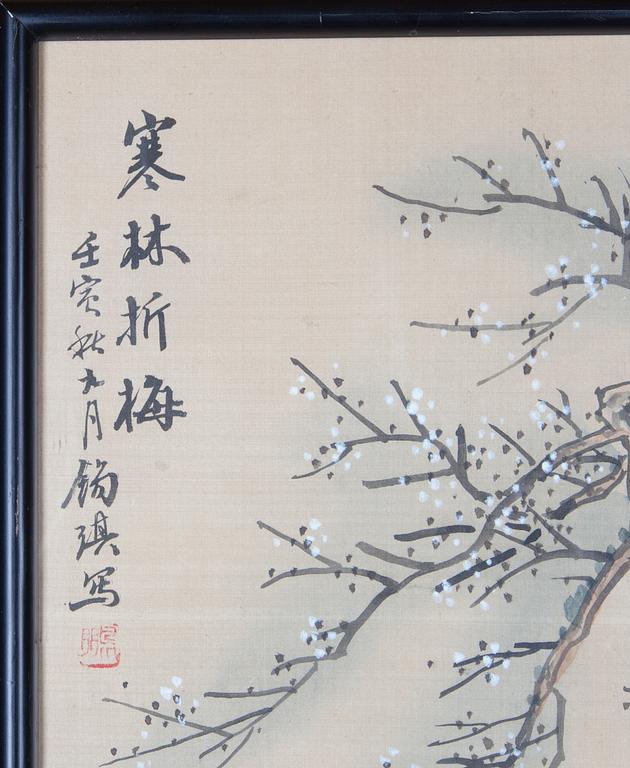 寒林折梅
壬寅秋九月錫琪写